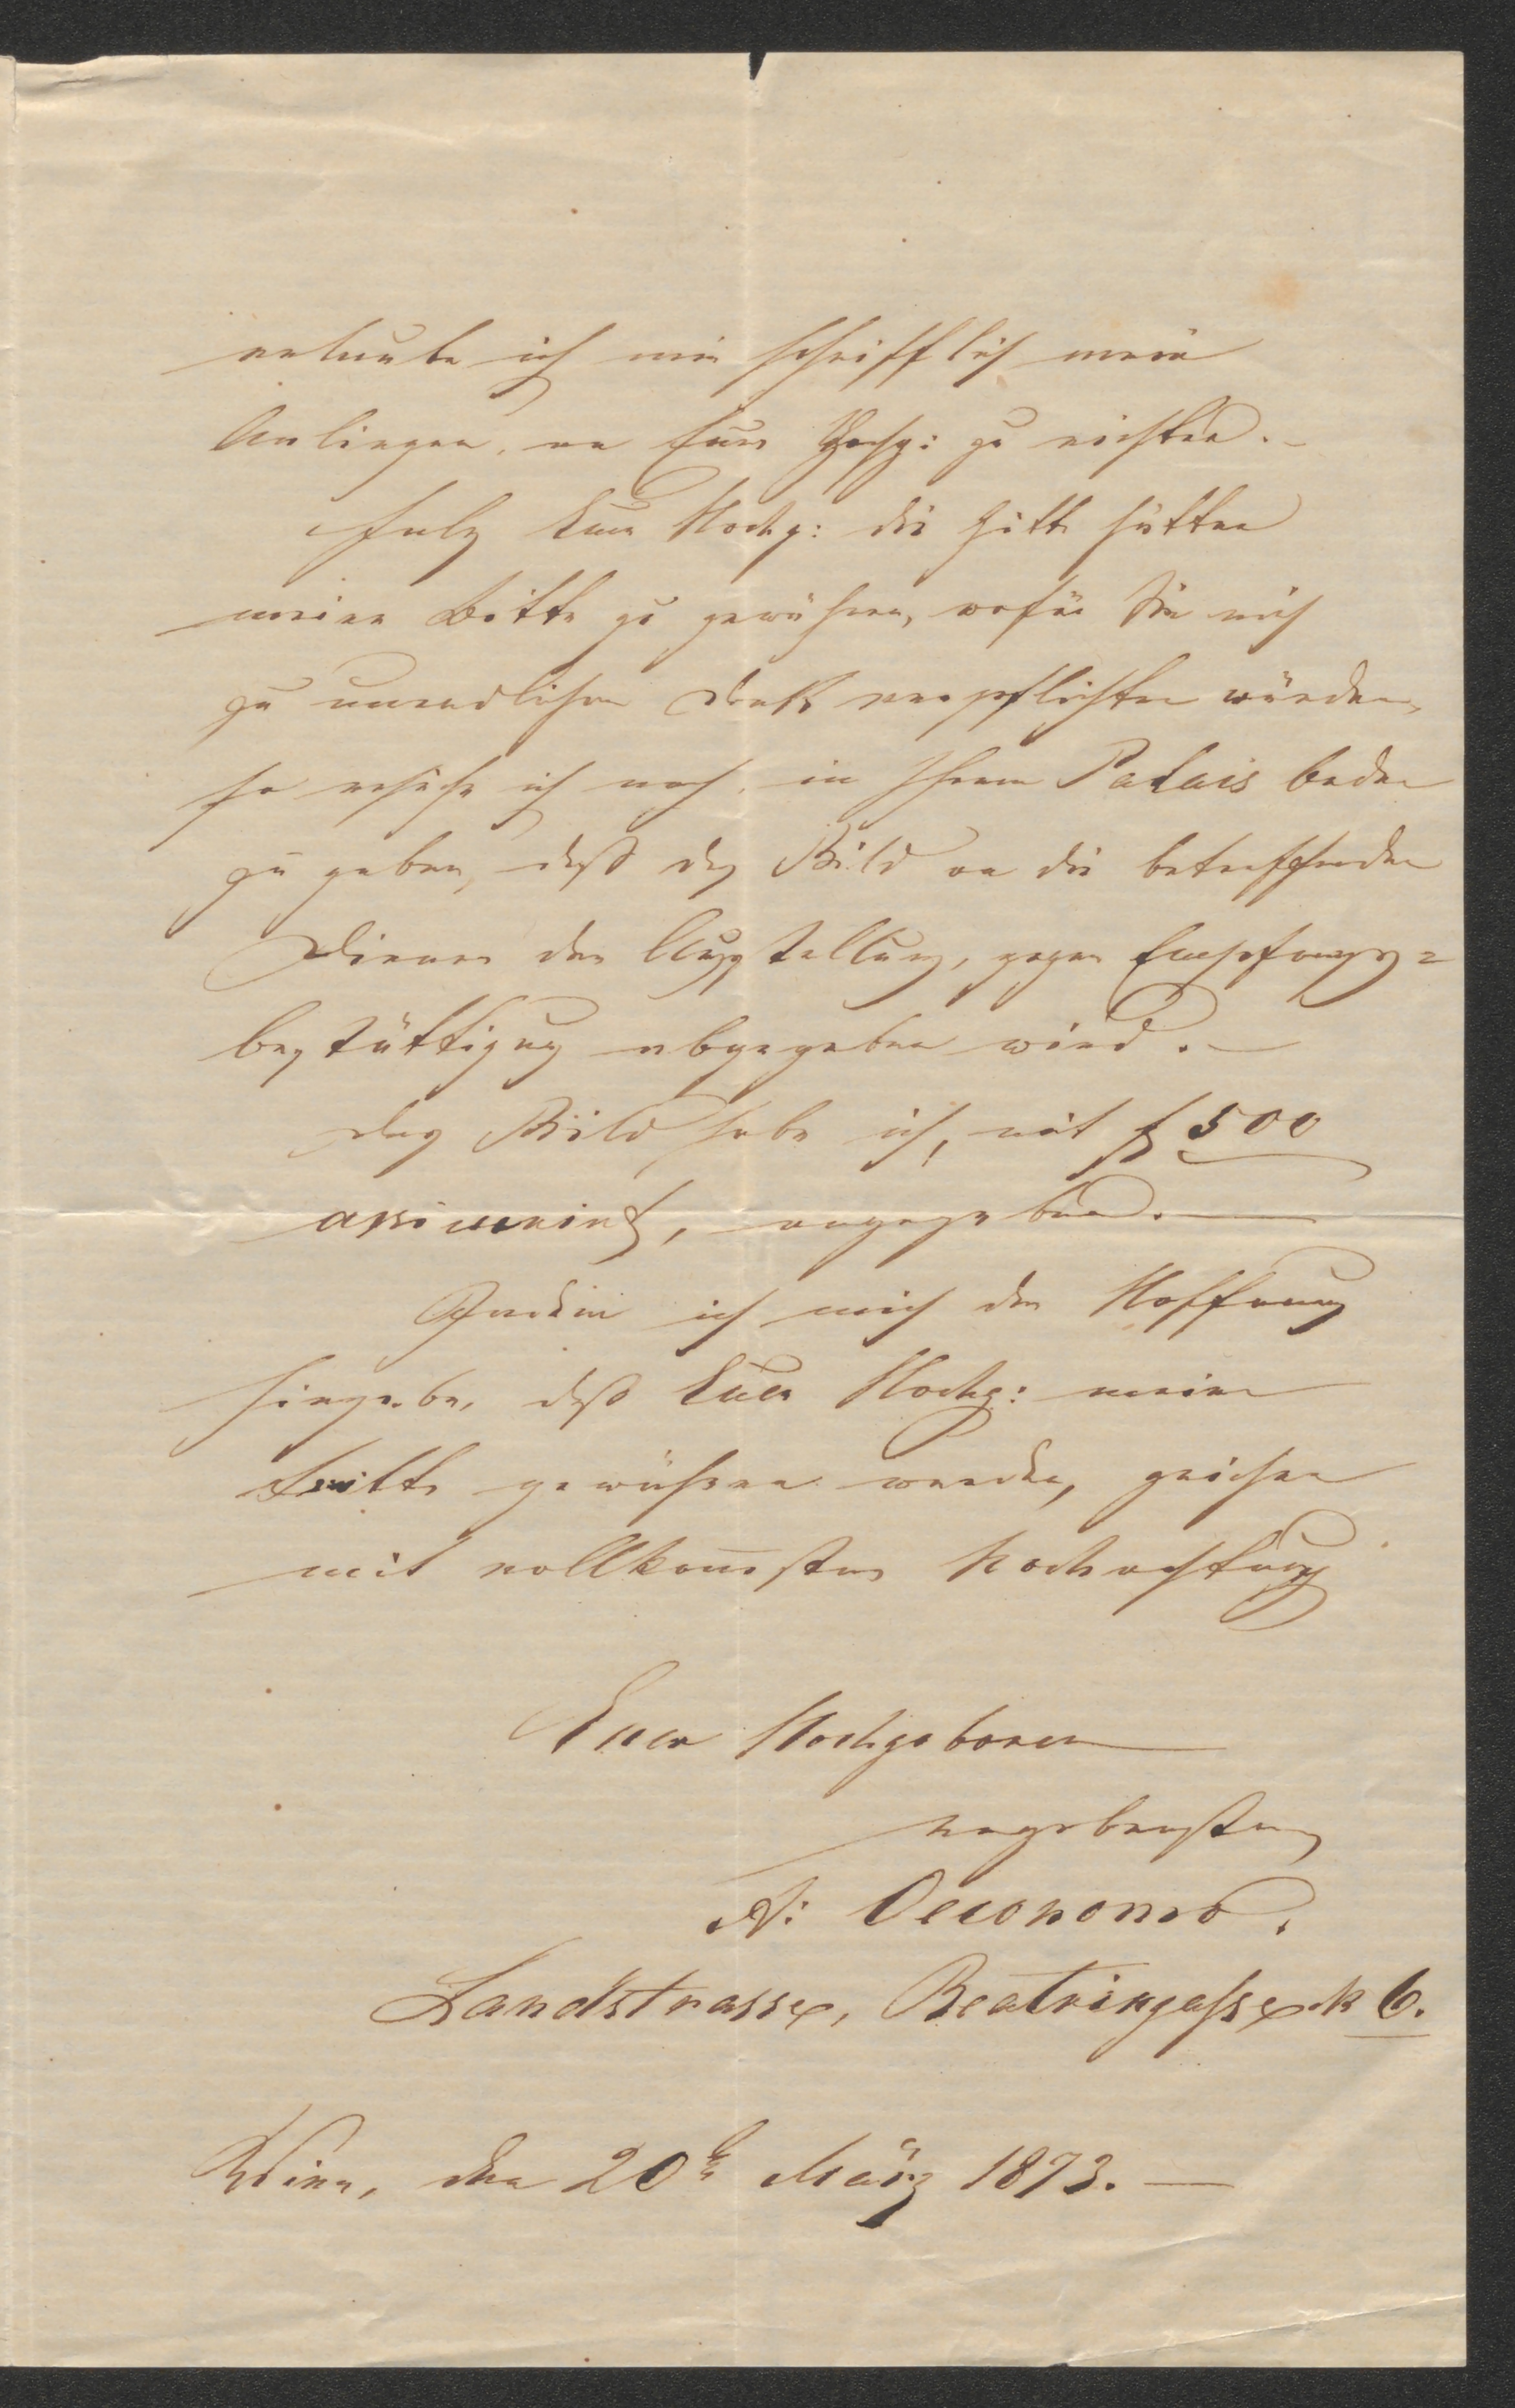 erlaube ich mir schriftlich mein
Anliegen, an Euer Hochg: zu richten. –
Falls Euer Hochg: die Güte hätten
meiner Bitte zu gewähren, wofür Sie mich
zu unendlichen Dank verpflichten würden,
so ersuche ich noch, in Ihrem Palais
zu geben, daß das Bild an die betreffenden
Diener der Ausstellung, gegen Empfangs=
bestättigung abgegeben wird. –
Das Bild habe ich, mit f 500
angegeben. –
Indem ich mich der Hoffnung
hingebe, daß Euer Hochg: meine
Bitte gewähren werden, zeichne
mit vollkom̅sten Hochachtung
Euer Hochgeboren
ergebenster
A: Oeconomo.
Landstrasse, Beatrixgasse N 6.
Wien, den 20t März 1873. –